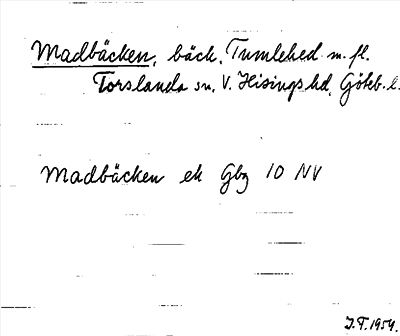 Madbäcken, bäck, Tumlehed m. fl.
Torslanda sn, V. Hisings hd, Göteb. l.
Madbäcken ek Gbg 10 NV
I.F. 1954.